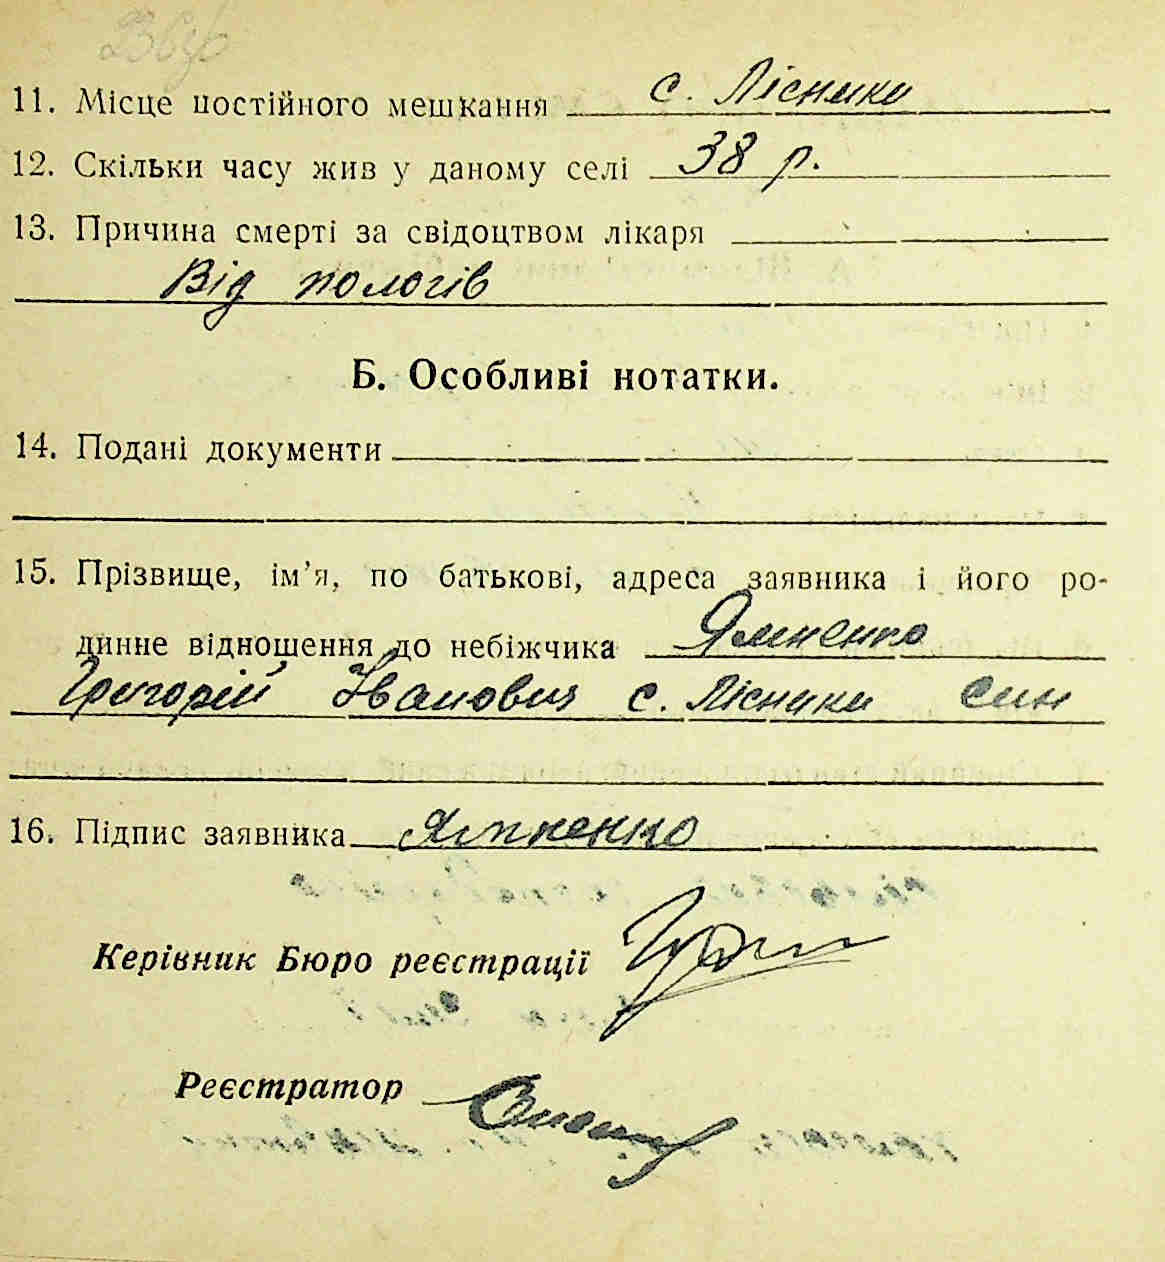 11. Місце постійного мешкання с. Лісники
12. Скільки часу жив у даному селі 38 р.
13. Причина смерті за свідоцтвом лікаря
Від пологів
Б. Особливі нотатки.
14. Подані документи
15. Прізвище, ім'я, по батькові, адреса заявника і його ро-
динне відношення до небіжчика Ямненко
Григорій Іванович с. Лісники син
16. Підпис заявника Ямненко
Керівник Бюро реєстрації
Реєстратор